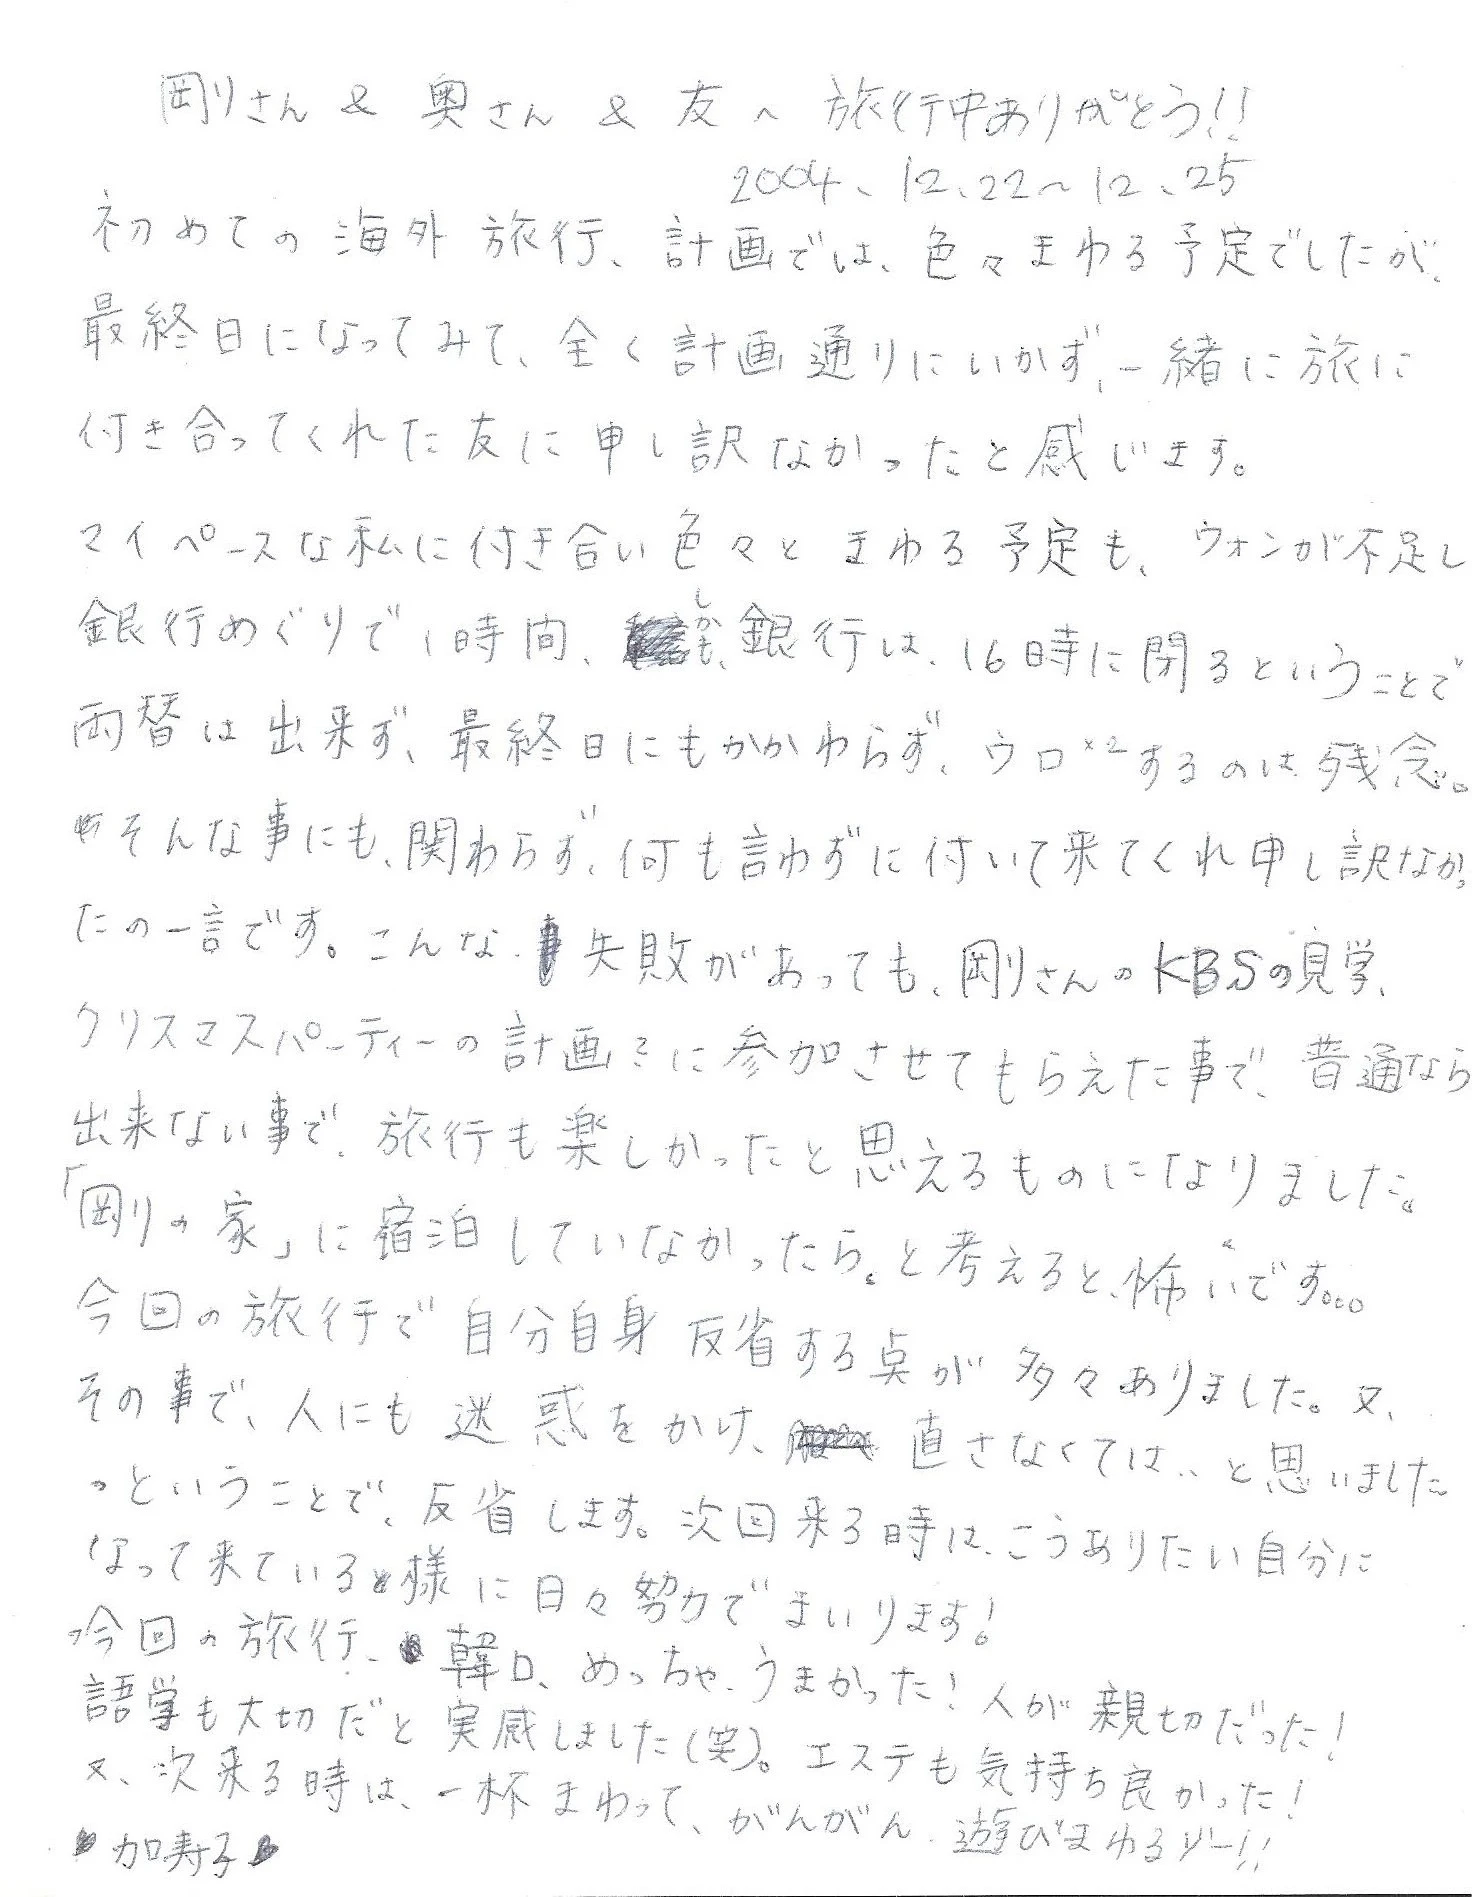 剛りさん & 奥さん & 友へ 旅行中ありがとう!!
2004、12、22〜12、25
初めての海外旅行、計画では、色々まわる予定でしたが、
最終日になってみて、全く計画通りにいかず、一緒に旅に
付き合ってくれた友に申し訳なかったと感じます。
マイペースな私に付き合い色々とまわる予定も、ウォンが不足し
銀行めぐりで1時間、しかも、銀行は、16時に閉るということで
両替は出来ず、最終日にもかかわらず、ウロ×2するのは残念。
そんな事にも、関わらず、何も言わずに付いて来てくれ申し訳なかっ
たの一言です。こんな失敗があっても、剛りさんのKBSの見学、
クリスマスパーティーの計画に参加させてもらえた事で、普通なら
出来ない事で、旅行も楽しかったと思えるものになりました。
「剛りの家」に宿泊していなかったら。と考えると、怖いです。。。
今回の旅行で自分自身反省する点が多々ありました。又、
その事で、人にも迷惑をかけ、直さなくては..と思いました
っということで、反省します。次回来る時は、こうありたい自分に
なって来ている様に日々努力でまいります!
今回の旅行、韓口、めっちゃ、うまかった! 人が親切だった!
語学も大切だと実感しました(笑)。エステも気持ち良かった!
又、次来る時は、一杯まわって、がんがん 遊びまわるゾー!!
加寿子